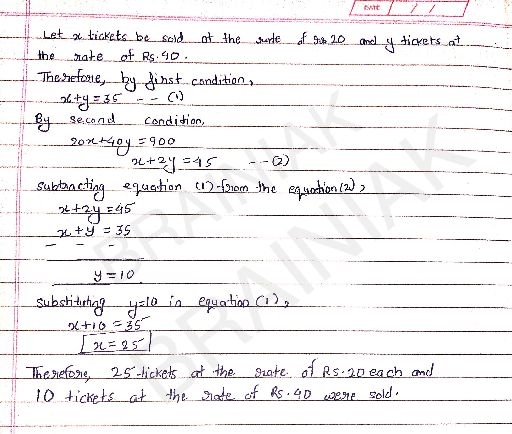 DATE
Let x tickets be sold at the rate of Rs 20 and y tickets at
the rate of Rs. 40.
Therefore, by first condition,
x+y=35 -- (1)
By second condition,
20x+40y=900
x+2y=45 --(2)
Subtracting equation (1) from the equation(2),
x+2y=45
x+y=35
- - -
y=10
Substituting y=10 in equation (1),
x+10=35
x=25
Therefore, 25 tickets at the rate of Rs.20 each and
10 tickets at the rate of Rs. 40 were sold.
BRAINIAK
BRAINIAK